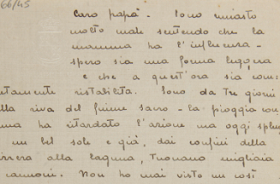 66/45
Caro papà - Sono rimasto
molto male sentendo che la
mamma ha l'influenza -
spero sia una forma leggera
e che a quest'ora sia com-
ristabilita. Sono da tre giorni
lla riva del fiume la pioggia con
ha ritardato l'azione ma oggi sple
un bel sole e già, dai confini della
alla laguna, tuonano migliaia
cannoni. Non ho mai visto un così